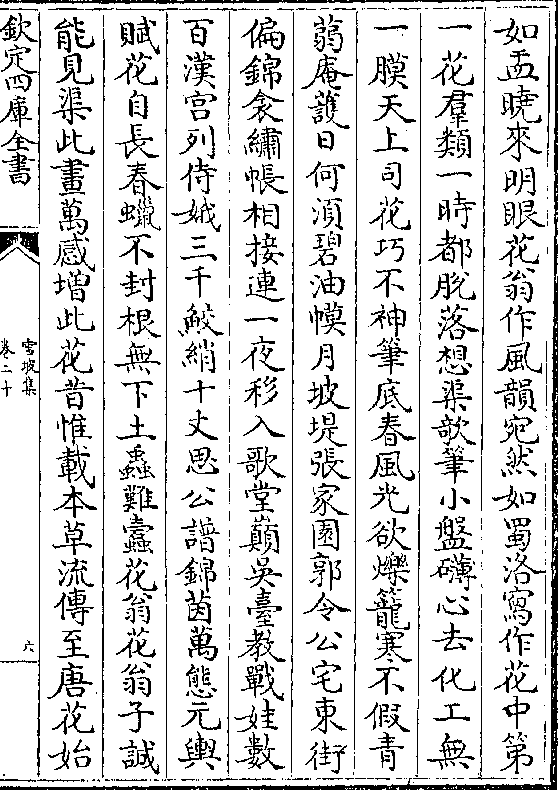 如盂曉來明眼花翁作風韻宛然如蜀洛寫作花中第
一花羣類一時都脫落想渠欹筆小盤礴心去化工無
一膜天上司花巧不神筆底春風光欲爍籠寒不假青
蒻庵護日何湏碧油幙月坡堤張家園郭令公宅東街
偏錦衾繡帳相接連一夜移入歌堂巔吳臺教戰娃數
百漢宫列侍娥三千鮫綃十丈思公譜錦茵萬態元輿
賦花自長春蠟不封根無下土蟲難蠹花翁花翁子誠
能見渠此畫萬感増此花昔惟載本草流傳至唐花始
欽定四庫全書
雪坡集
卷二十
六